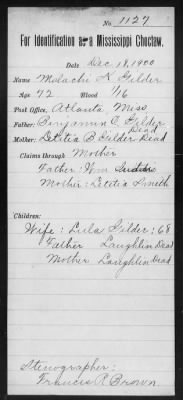 No. 1127
For Identification as a Mississippi Choctaw.
Date Dec 18, 1900
Name Malachi K Gilder
Age 72 Blood 1/16
Post Office, Atlanta Miss
Father: Benjamin C. Gilder Dead
Mother: Letitia B Gilder Dead
Claims through Mother
Father: Wm Smith
Mother: Letitia Smith
Children:
Wife: Lula Gilder: 68
Father Laughlin Dead
Mother Laughlin Dead
Stenographer:
Francis R Brown